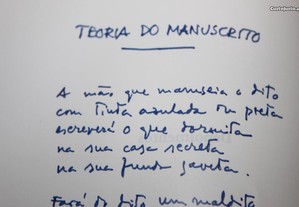 TEORIA DO MANUSCRITO
A mão que manuseia o dito
com tinta azulada ou preta
escreverá o que dormita
na sua casa secreta
na sua funda gaveta.
Fará do dito um maldito